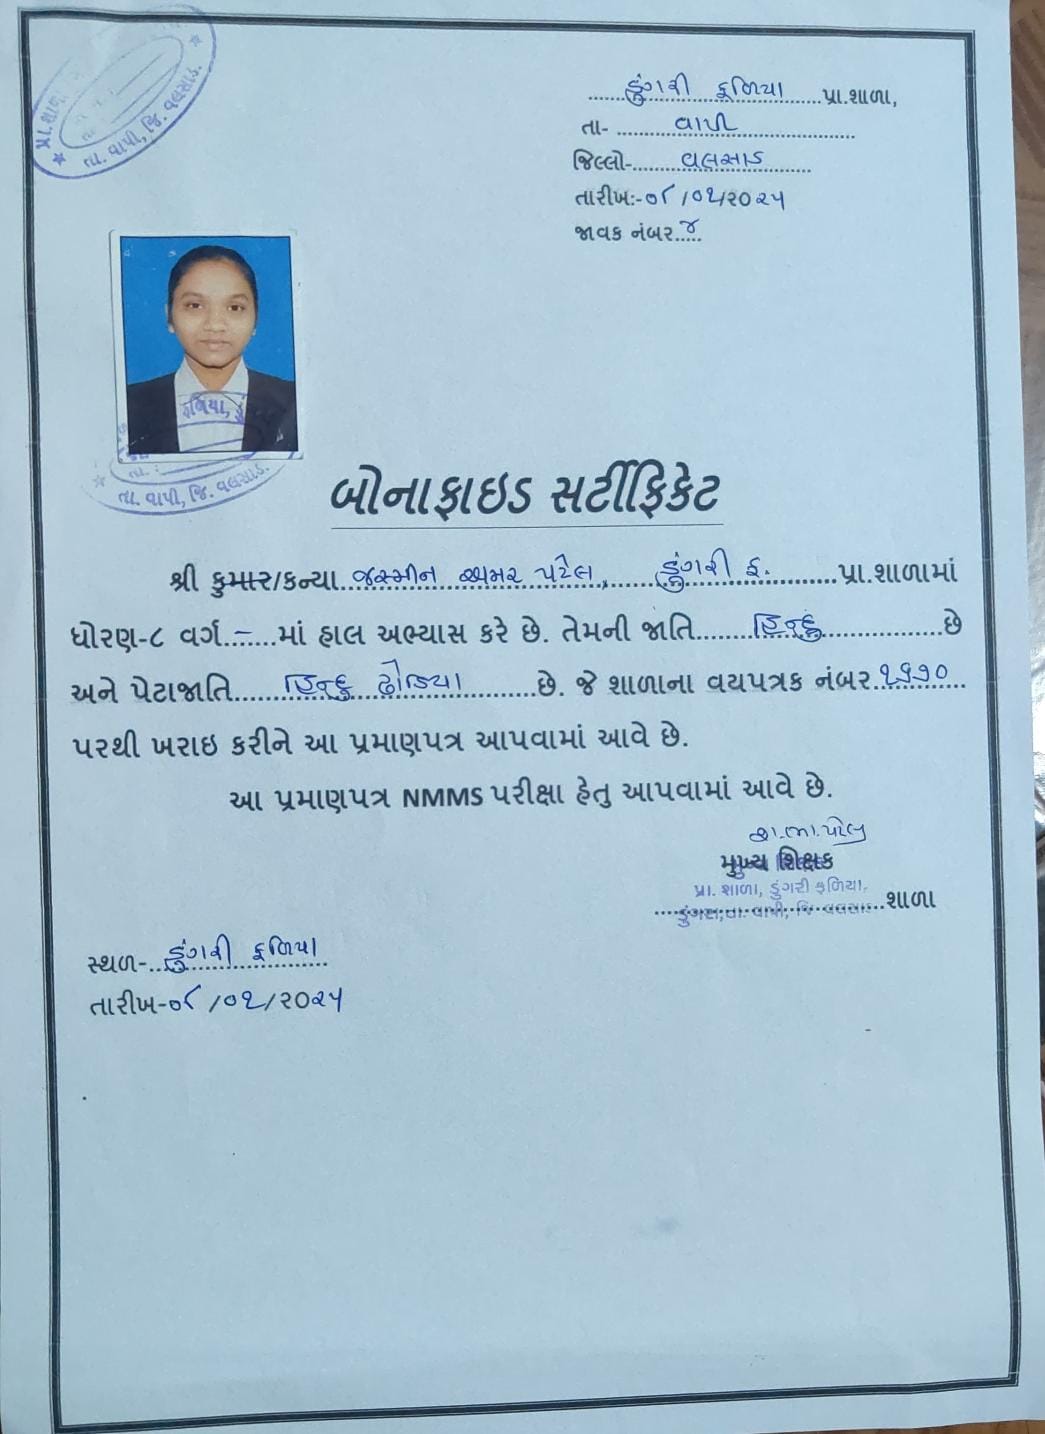 પ્રા.શાળા
તા. વાપી, જિ. વલસાડ.
ડુંગરી ફળિયા પ્રા.શાળા,
તા- વાપી
જિલ્લો- વલસાડ
તારીખ:-૦૮/૦૧/૨૦૨૫
જાવક નંબર ૪
ફળિયા,
તા. વાપી, જિ. વલસાડ.
બોનાફાઇડ સર્ટીફિકેટ
શ્રી કુમાર/કન્યા જસ્મીન અમર પટેલ, ડુંગરી ફ. પ્રા.શાળામાં
ધોરણ-૮ વર્ગ - માં હાલ અભ્યાસ કરે છે. તેમની જાતિ હિન્દુ છે
અને પેટાજાતિ હિન્દુ ઢોડિયા છે. જે શાળાના વયપત્રક નંબર ૧૧૭૦
પરથી ખરાઇ કરીને આ પ્રમાણપત્ર આપવામાં આવે છે.
આ પ્રમાણપત્ર NMMS પરીક્ષા હેતુ આપવામાં આવે છે.
મુખ્ય શિક્ષક
પ્રા. શાળા, ડુંગરી ફળિયા,
ડુંગરા, તા. વાપી, જિ વલસાડ શાળા
સ્થળ- ડુંગરી ફળિયા
તારીખ-૦૮/૦૧/૨૦૨૫